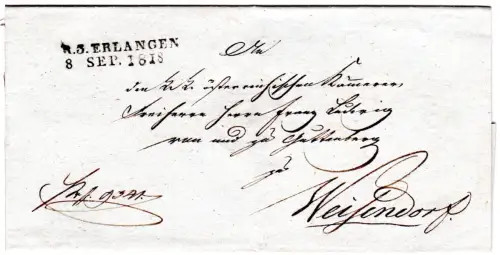 R.3.ERLANGEN
8 SEP. 1818
An
den K. K. österreichischen Kämmerer,
Freiherrn Herrn Franz Ludwig
von und zu Guttenberg
zu
Weisendorf.